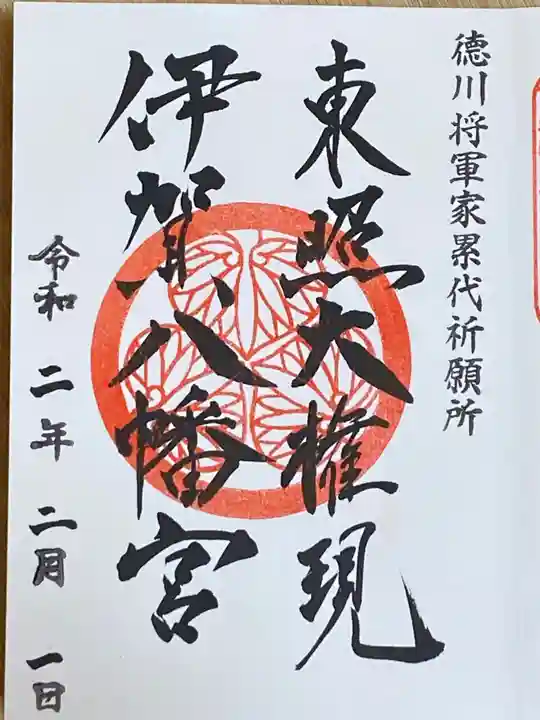 徳川将軍家累代祈願所
東照大権現
伊賀八幡宮
令和 二年 二月 一日